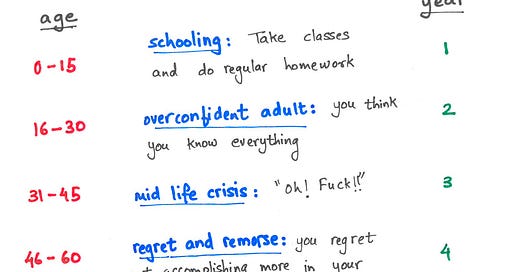 age
year
schooling: Take classes
0-15
and do regular homework
1
overconfident adult: you think
16-30
you know everything
2
31-45
mid life crisis: "Oh! Fuck!!"
3
regret and remorse: you regret
46-60
accomplishing more in your
4